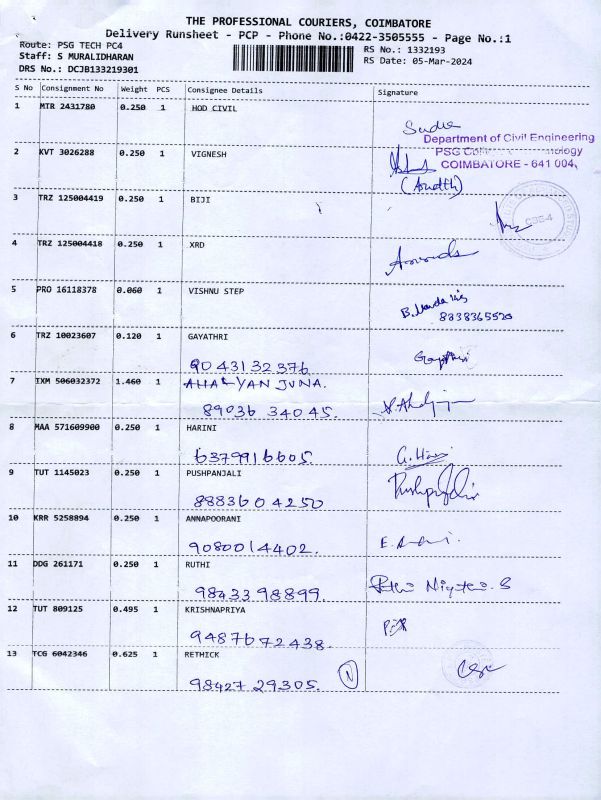 THE PROFESSIONAL COURIERS, COIMBATORE
Delivery Runsheet - PCP - Phone No.:0422-3505555 - Page No.:1
Route: PSG TECH PC4 RS No.: 1332193
Staff: S MURALIDHARAN RS Date: 05-Mar-2024
DRS No.: DCJB133219301
S No Consignment No Weight PCS Consignee Details Signature
1 MTR 2431780 0.250 1 HOD CIVIL
Department of Civil Engineering
PSG
COIMBATORE - 641 004
2 KVT 3026288 0.250 1 VIGNESH
3 TRZ 125004419 0.250 1 BIJI
CBE-4
4 TRZ 125004418 0.250 1 XRD
5 PRO 16118378 0.060 1 VISHNU STEP
8838365520
6 TRZ 10023607 0.120 1 GAYATHRI
90 43132376
7 IXM 506032372 1.460 1
89036 34045.
8 MAA 571609900 0.250 1 HARINI
6379916605. G. Hari
9 TUT 1145023 0.250 1 PUSHPANJALI
8883604250
10 KRR 5258894 0.250 1 ANNAPOORANI
9080014402.
11 DDG 261171 0.250 1 RUTHI
9843398899.
12 TUT 809125 0.495 1 KRISHNAPRIYA
9487672438.
13 TCG 6042346 0.625 1 RETHICK
98427 29305. N